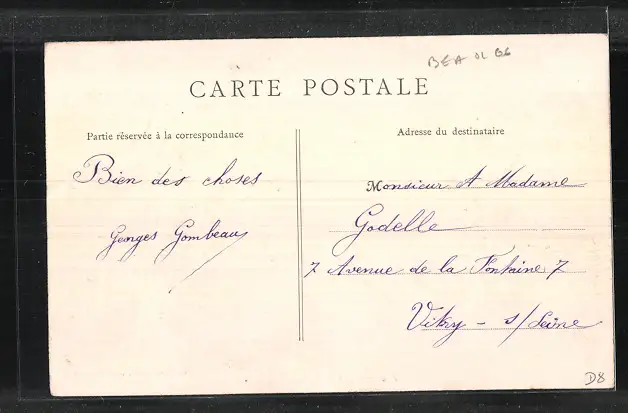 BEA OL B6
CARTE POSTALE
Partie réservée à la correspondance
Adresse du destinataire
Bien des choses
Georges Gombeau
Monsieur et Madame
Godelle
7 Avenue de la Fontaine 7
Vitry - s/Seine
D8